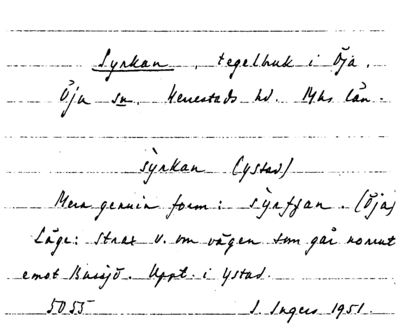 Syrkan, tegelbruk i Öja.
Öja sn. Herrestads hd. Mhs län.
sỳrkan (Ystad)
Mera genuin form: sỳrtjan. (Öja)
Läge: strax v. om vägen som går norrut
emot Bussjö. Uppt. i Ystad.
5055 I. Ingers 1951.